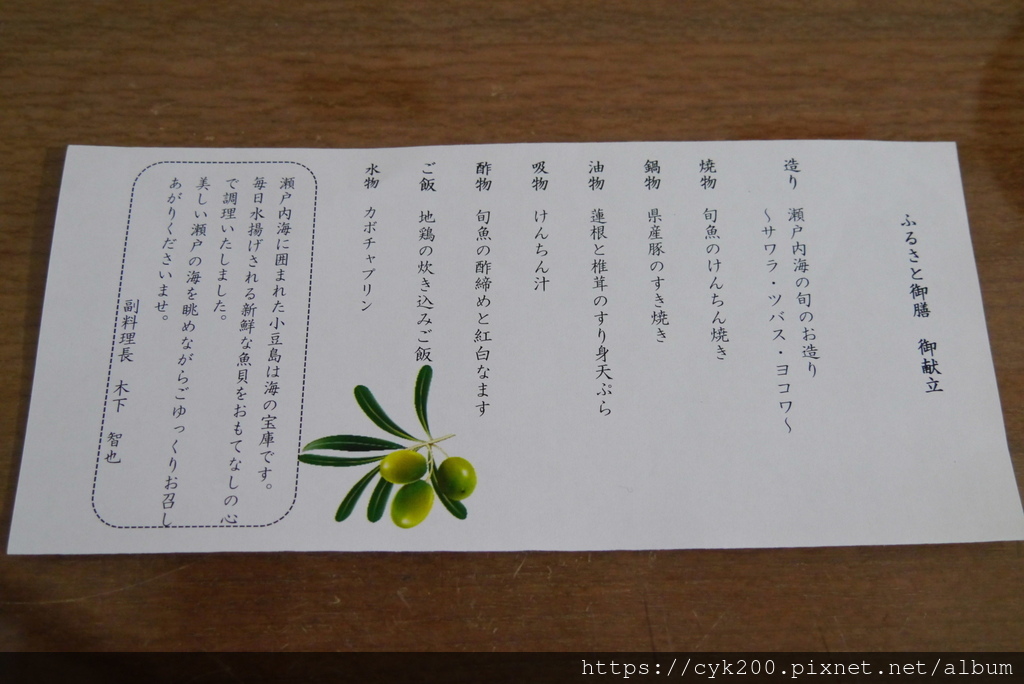 ふるさと御膳　御献立
造り　瀬戸内海の旬のお造り
～サワラ・ツバス・ヨコワ～
焼物　旬魚のけんちん焼き
鍋物　県産豚のすき焼き
油物　蓮根と椎茸のすり身天ぷら
吸物　けんちん汁
酢物　旬魚の酢締めと紅白なます
ご飯　地鶏の炊き込みご飯
水物　カボチャプリン
瀬戸内海に囲まれた小豆島は海の宝庫です。
毎日水揚げされる新鮮な魚貝をおもてなしの心
で調理いたしました。
美しい瀬戸の海を眺めながらごゆっくりお召し
あがりくださいませ。
副料理長　木下　智也
https://cyk200.pixnet.net/album